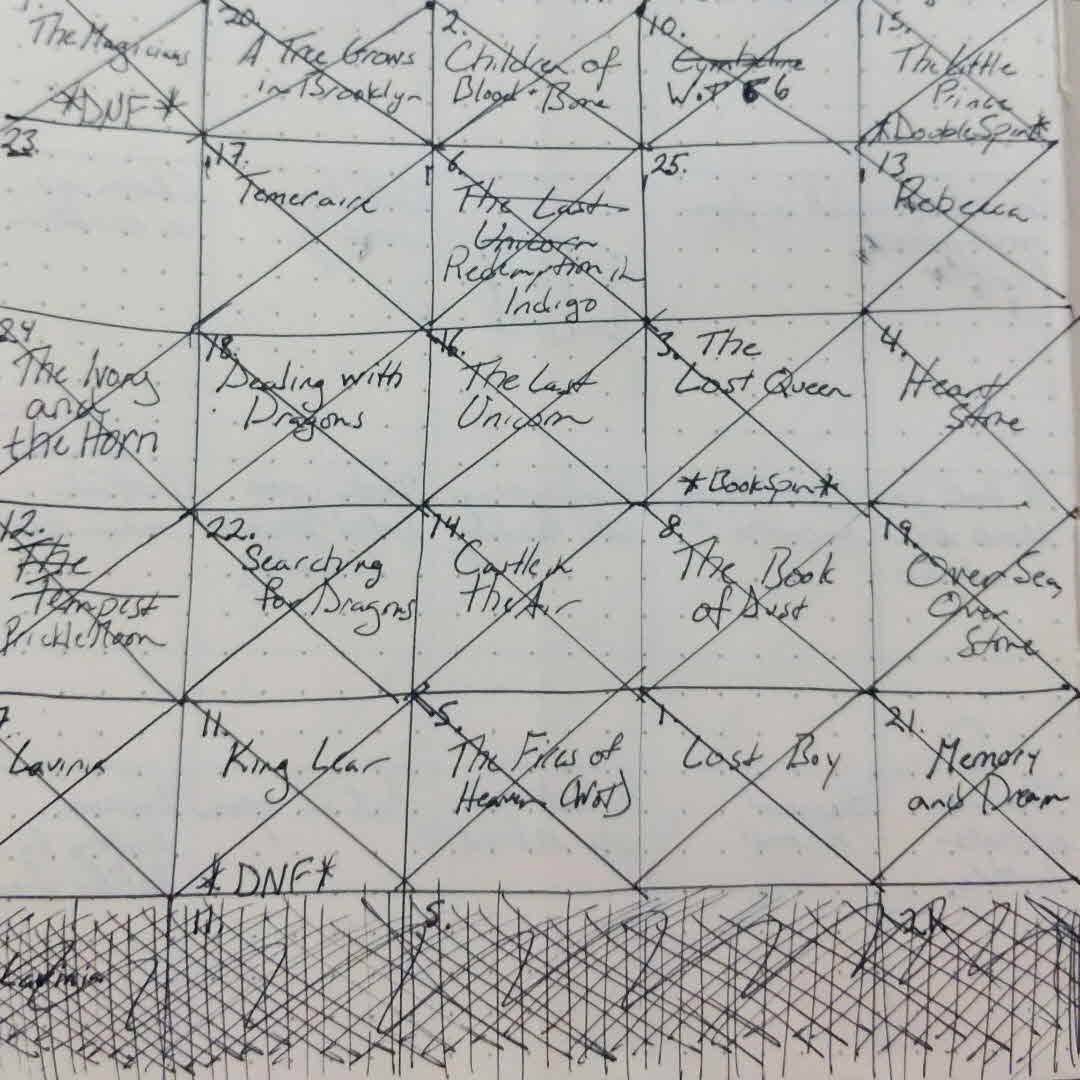 The Magicians
*DNF*
20.
A Tree Grows
in Brooklyn
2.
Children of
Blood + Bone
10.
Cymbeline
WoT 6
15.
The Little
Prince
*DoubleSpin*
23.
17.
Temeraire
6.
The Last
Unicorn
Redemption in
Indigo
25.
13.
Rebecca
24
The Ivory
and
the Horn
18.
Dealing with
Dragons
16.
The Last
Unicorn
3. The
Lost Queen
*BookSpin*
4.
Heart
Stone
12.
The
Tempest
Prickle Moon
22.
Searching
for Dragons
14.
Castle in
the Air
8.
The Book
of Dust
19.
Over Sea,
Under
Stone
7.
Lavinia
11.
King Lear
*DNF*
5.
The Fires of
Heaven (WoT)
1.
Lost Boy
21.
Memory
and Dream
11.
5.
21
Lavinia